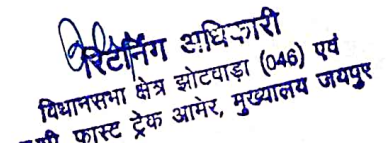 रिटर्निंग अधिकारी
विधानसभा क्षेत्र झोटवाड़ा (046) एवं
फास्ट ट्रेक आमेर, मुख्यालय जयपुर